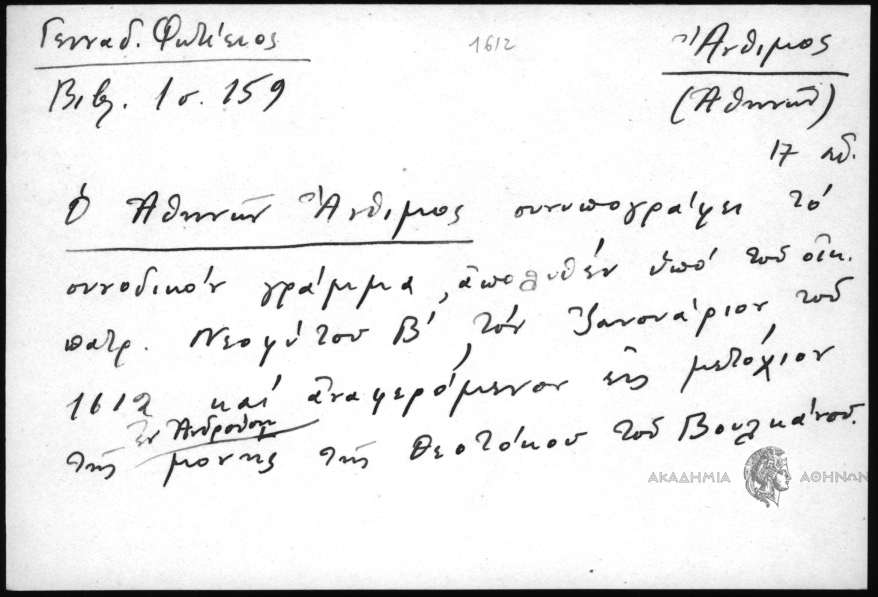 Γενναδ. Φωτίειος 1612 Ἄνθιμος
Βιβλ. 1 σ. 159 (Ἀθηνῶν)
17 αἰ.
Ὁ Ἀθηνῶν Ἄνθιμος συνυπογράφει τό
συνοδικόν γράμμα, ἀπολυθέν ὑπό τοῦ οἰκ.
πατρ. Νεοφύτου Β΄, τόν Ἰανουάριον τοῦ
1612 καί ἀναφερόμενον εἰς μετόχιον
ἐν Ἀνδρούσῃ
τῆς μονῆς τῆς Θεοτόκου τοῦ Βουλκάνου.
ΑΚΑΔΗΜΙΑ ΑΘΗΝΩΝ